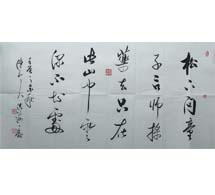 松下問童
子言師採
藥去只在
此山中雲
深不知處